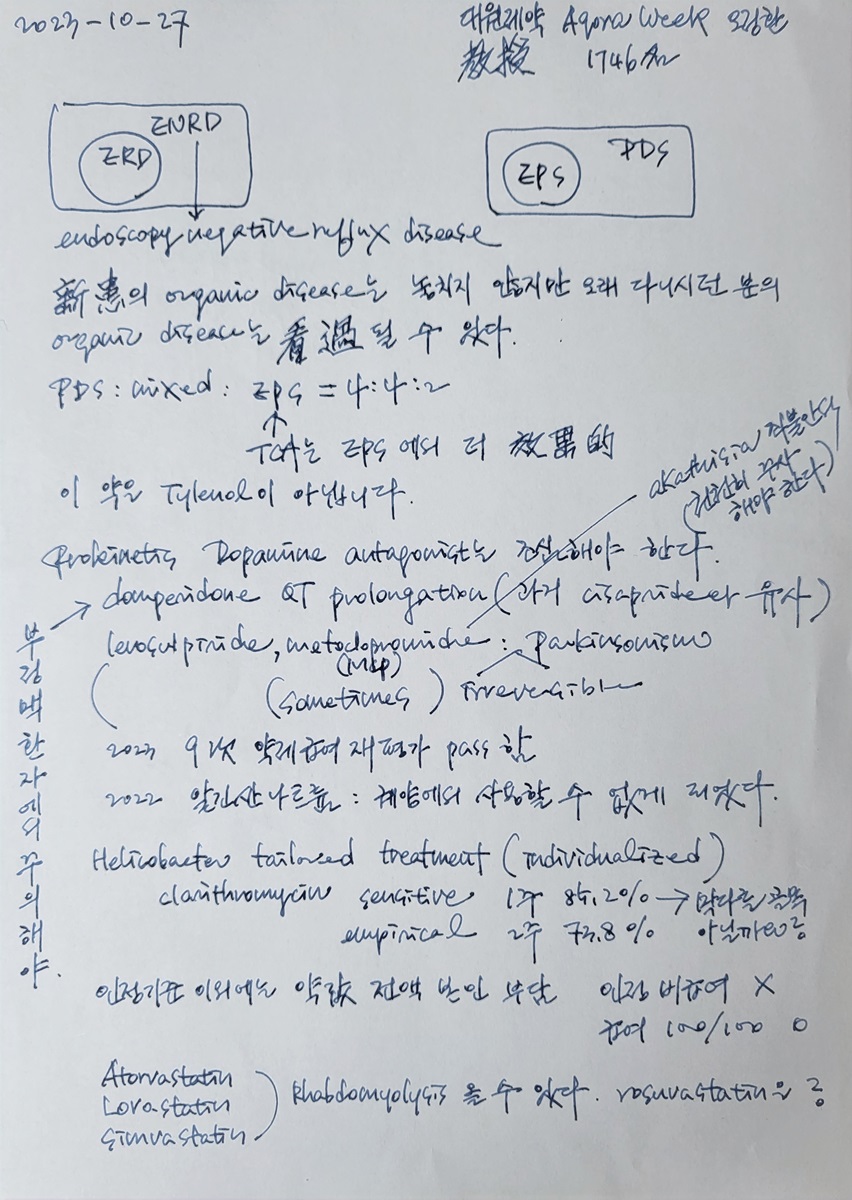 2023-10-27
대원제약 Agora Week 오정환
教授 1746名
ENRD
ERD
PDS
EPS
endoscopy negative reflux disease
新患의 organic disease는 놓치지 않지만 오래 다니시던 분의
organic disease는 看過될 수 있다.
PDS : mixed : EPS = 4:4:2
↑
TCA는 EPS에서 더 效果的
이 약은 Tylenol이 아닙니다.
akathisia 좌불안석
(천천히 주사
해야 한다)
Prokinetic, Dopamine antagonist는 조심해야 한다.
→ domperidone QT prolongation (과거 cisapride와 유사)
levosulpiride, metoclopramide : Parkinsonism
(Mcp)
(sometimes) irreversible
부정맥 환자에서 주의해야.
2023 약제급여 재평가 pass 함
2022 알긴산나트륨 : 궤양에서 사용할 수 없게 되었다.
Helicobacter tailored treatment (individualized)
clarithromycin sensitive 1주 85.2% → 막다른 골목
empirical 2주 73.8% 아닐까요?
인정기준 이외에는 약값 전액 본인 부담 인정 비급여 X
급여 100/100 O
Atorvastatin
Lovastatin
Simvastatin
Rhabdomyolysis 올 수 있다. rosuvastatin은